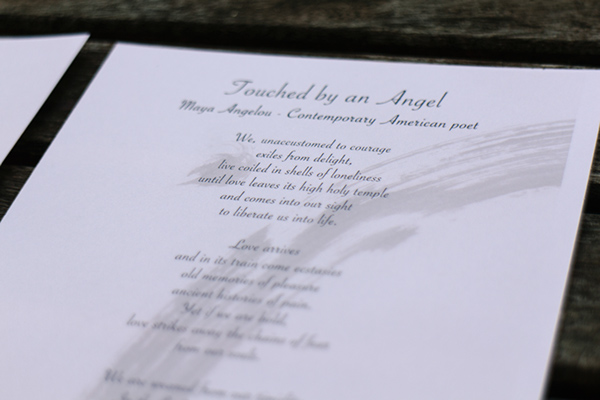 Touched by an Angel
Maya Angelou - Contemporary American poet
We, unaccustomed to courage
exiles from delight,
live coiled in shells of loneliness
until love leaves its high holy temple
and comes into our sight
to liberate us into life.
Love arrives
and in its train come ecstasies
old memories of pleasure
ancient histories of pain.
Yet if we are bold,
love strikes away the chains of fear
from our souls.
We are weaned from our